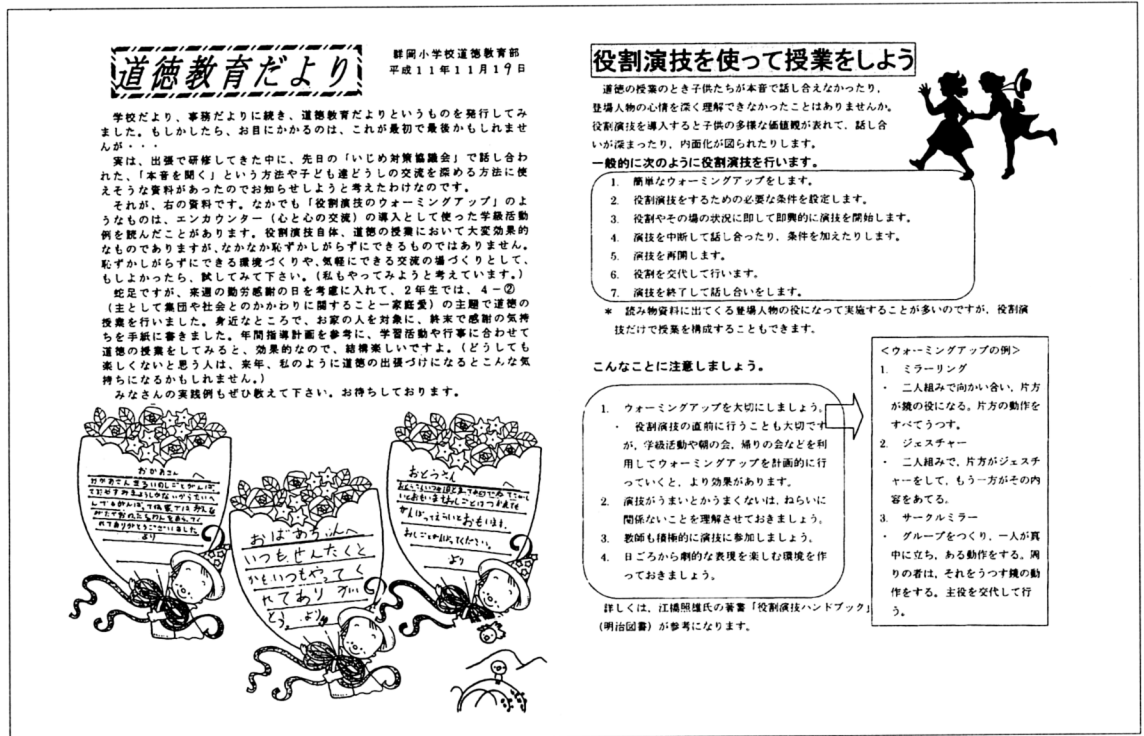 道徳教育だより
群岡小学校道徳教育部
平成11年11月19日
学校だより、事務だよりに続き、道徳教育だよりというものを発行してみ
ました。もしかしたら、お目にかかるのは、これが最初で最後かもしれませ
んが・・・
実は、出張で研修してきた中に、先日の「いじめ対策協議会」で話し合わ
れた、「本音を聞く」という方法や子ども達どうしの交流を深める方法に使
えそうな資料があったのでお知らせしようと考えたわけなのです。
それが、右の資料です。なかでも「役割演技のウォーミングアップ」のよ
うなものは、エンカウンター（心と心の交流）の導入として使った学級活動
例を読んだことがあります。役割演技自体、道徳の授業において大変効果的
なものでありますが、なかなか恥ずかしがらずにできるものではありません。
恥ずかしがらずにできる環境づくりや、気軽にできる交流の場づくりとして、
もしよかったら、試してみて下さい。（私もやってみようと考えています。）
蛇足ですが、来週の勤労感謝の日を考慮に入れて、2年生では、4－②
（主として集団や社会とのかかわりに関すること－家庭愛）の主題で道徳の
授業を行いました。身近なところで、お家の人を対象に、終末で感謝の気持
ちを手紙に書きました。年間指導計画を参考に、学習活動や行事に合わせて
道徳の授業をしてみると、効果的なので、結構楽しいですよ。（どうしても
楽しくないと思う人は、来年、私のように道徳の出張づけになるとこんな気
持ちになるかもしれません。）
みなさんの実践例もぜひ教えて下さい。お待ちしております。
おかあさんへ
より
おばあちゃんへ
いつも、せんたくと
かを、いつもやってく
れてありがい
とう。より
おとうさんへ
がんばってえらいとおもいます。
おしごとがんばってください。
より
役割演技を使って授業をしよう
道徳の授業のとき子供たちが本音で話し合えなかったり、
登場人物の心情を深く理解できなかったことはありませんか。
役割演技を導入すると子供の多様な価値観が表れて、話し合
いが深まったり、内面化が図られたりします。
一般的に次のように役割演技を行います。
1. 簡単なウォーミングアップをします。
2. 役割演技をするための必要な条件を設定します。
3. 役割やその場の状況に即して即興的に演技を開始します。
4. 演技を中断して話し合ったり、条件を加えたりします。
5. 演技を再開します。
6. 役割を交代して行います。
7. 演技を終了して話し合いをします。
＊ 読み物資料に出てくる登場人物の役になって実施することが多いのですが、役割演
技だけで授業を構成することもできます。
こんなことに注意しましょう。
1. ウォーミングアップを大切にしましょう。
・ 役割演技の直前に行うことも大切です
が、学級活動や朝の会、帰りの会などを利
用してウォーミングアップを計画的に行
っていくと、より効果があります。
2. 演技がうまいとかうまくないは、ねらいに
関係ないことを理解させておきましょう。
3. 教師も積極的に演技に参加しましょう。
4. 日ごろから劇的な表現を楽しむ環境を作
っておきましょう。
詳しくは、江橋照雄氏の著書「役割演技ハンドブック」
（明治図書）が参考になります。
＜ウォーミングアップの例＞
1. ミラーリング
・ 二人組みで向かい合い、片方
が鏡の役になる。片方の動作を
すべてうつす。
2. ジェスチャー
・ 二人組みで、片方がジェスチ
ャーをして、もう一方がその内
容をあてる。
3. サークルミラー
・ グループをつくり、一人が真
中に立ち、ある動作をする。周
りの者は、それをうつす鏡の動
作をする。主役を交代して行
う。